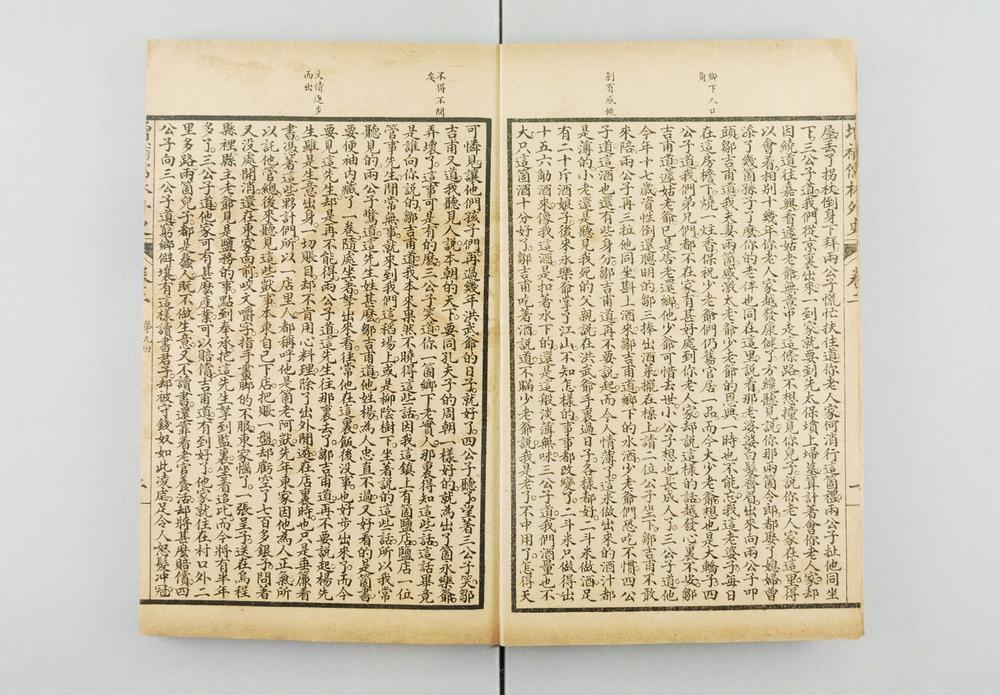 鄉下人口
角
別有感慨
塵丟了拐杖倒身下拜兩公子慌忙扶住道你老人家何消行這箇禮兩公子扯他同坐
下三公子道我們從京裏出來一到家就要到先太保墳上掃墓算計著會你老人家却
因繞道往嘉興看蘧姑老爺無意中走這條路不想撞見你兒子說你老人家在這裏得
以會着相別十幾年你老人家越發康健了方纔聽見說你那兩箇令郎都娶了媳婦曾
添了幾箇孫子了麼你的老伴也同在這裏說着那老婆婆白髮齊眉出來向兩公子叩
頭鄒吉甫道我夫妻兩箇感激太老爺少老爺的恩典一時也不能忘我這老婆子每日
在這房檐下燒一炷香保祝少老爺們仍舊官居一品而今大少老爺想也是大轎子四
公子道我們弟兄們都不在家有甚好處到你老人家却說這樣的話越發心裏不安鄒
公子道蘧姑老爺已是告老還鄉他少爺可惜去世小公子想也長成人了三公子道他
今年十七歲資性倒還聰明的鄒三捧出酒菜擺在桌上請二位公子坐下鄒吉甫不敢
來陪兩公子再三拉他同坐斟上酒來鄒吉甫道鄉下的水酒少老爺們恐吃不慣四公
子道這酒也還有些身分鄒吉甫道再不要說起而今人情薄了這米做出來的酒汁都
是薄的小老還是聽見我死的父親說在洪武爺手裏過日子各樣都好二斗米做酒足
有二十斤酒娘子後來永樂爺掌了江山不知怎樣的事事都改變了二斗米只做得出
十五六觔酒來像我這酒是扣着水下的還是這般淡薄無味三公子道我們酒量也不
大只這箇酒十分好了鄒吉甫吃著酒說道不瞞少老爺說我是老了不中用了怎得天
不得不問
矣
文情逐步
而出
可憐見讓他們孩子們再過幾年洪武爺的日子就好了四公子聽了望著三公子笑鄒
吉甫又道我聽見人說本朝的天下要同孔夫子的周朝一樣好的就為出了箇永樂爺
弄壞了這事可是有的麼三公子笑道你一箇鄉下老實人那裏得知這些話這話畢竟
是誰向你說的鄒吉甫道我本來果然不曉得這些話因我這鎮上有箇鹽店鹽店一位
管事先生閒常無事就來到我們這稻場上或是柳陰樹下坐著說的這些話所以我常
聽見的兩公子驚道這先生姓甚麼鄒吉甫道他姓楊為人忠直不過又好看的是箇書
要便袖內藏了一卷隨處坐著拏出來看往常他在這裏飯後沒事也好步出來了而今
要見這先生却是再不能得兩公子道這先生往那裏去了鄒吉甫道再不要說起楊先
生雖是生意出身一切賬目却不肯用心料理除了出外閒遊在店裏時也只是垂簾看
書憑著這些夥計們所以一店裏人都稱呼他是箇老阿獃先年東家因他為人正氣所
以託他管總後來聽見這些獃事本東自己下店把賬一盤却虧空了七百多銀子問著
又沒處開消還在東家面前咬文嚼字指手畫脚的不服東家惱了一張呈子送在烏程
縣裡縣主老爺見是鹽務的事點到奉承把這先生拏到監裏坐着追比而今將有半年
多了三公子道他家可有甚麼產業可以賠償吉甫道有到好了他家就住在村口外二
里多路兩箇兒子都是蠢人既不做生意又不讀書還靠着老官養活却將甚麼賠償四
公子向三公子道窮鄉僻壤有這樣讀書君子却被守錢奴如此凌虐足令人怒髮沖冠
卷二
第九回
二